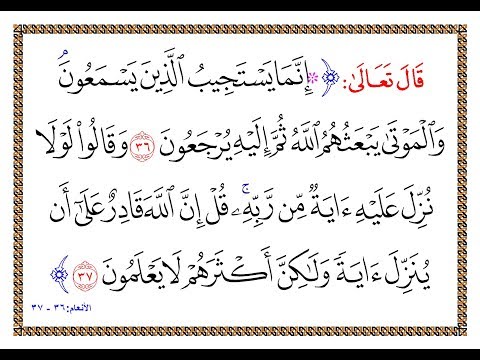 قَالَ تَعَالَىٰ: ﴿ ۞ إِنَّمَا يَسْتَجِيبُ ٱلَّذِينَ يَسْمَعُونَۘ
وَٱلْمَوْتَىٰ يَبْعَثُهُمُ ٱللَّهُ ثُمَّ إِلَيْهِ يُرْجَعُونَ ٣٦ وَقَالُوا۟ لَوْلَا
نُزِّلَ عَلَيْهِ ءَايَةٌ مِّن رَّبِّهِۦۚ قُلْ إِنَّ ٱللَّهَ قَادِرٌ عَلَىٰٓ أَن
يُنَزِّلَ ءَايَةً وَلَٰكِنَّ أَكْثَرَهُمْ لَا يَعْلَمُونَ ٣٧ ﴾
الأنعام: ٣٦ - ٣٧